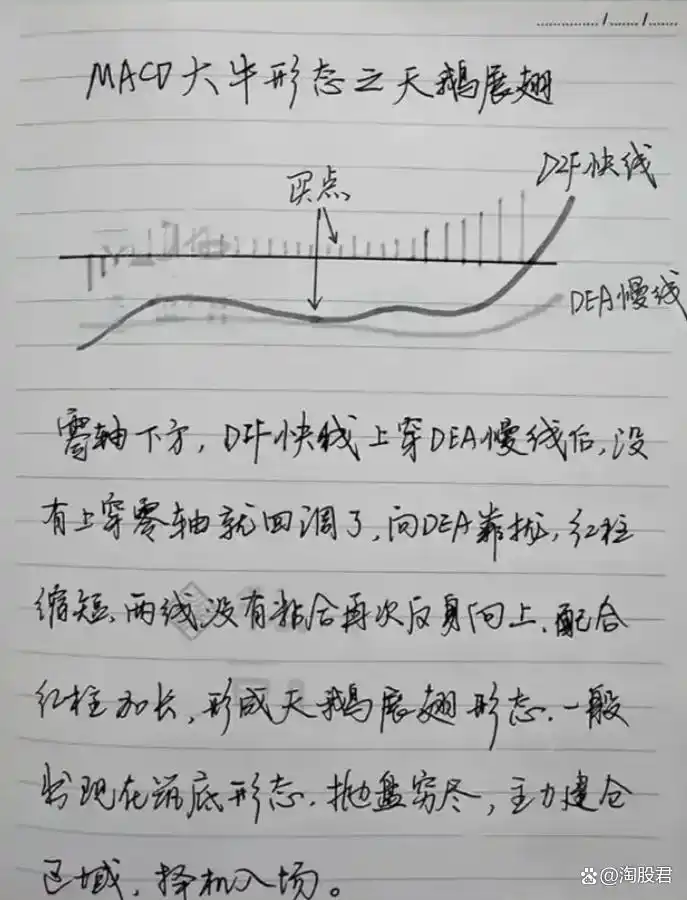 MACD大牛形态之天鹅展翅
买点
DIF快线
DEA慢线
零轴下方,DIF快线上穿DEA慢线后,没
有上穿零轴就回调了,向DEA靠拢,红柱
缩短、两线没有粘合再次反身向上,配合
红柱加长,形成天鹅展翅形态.一般
出现在筑底形态.抛盘穷尽,主力建仓
区域.择机入场。
@淘股君